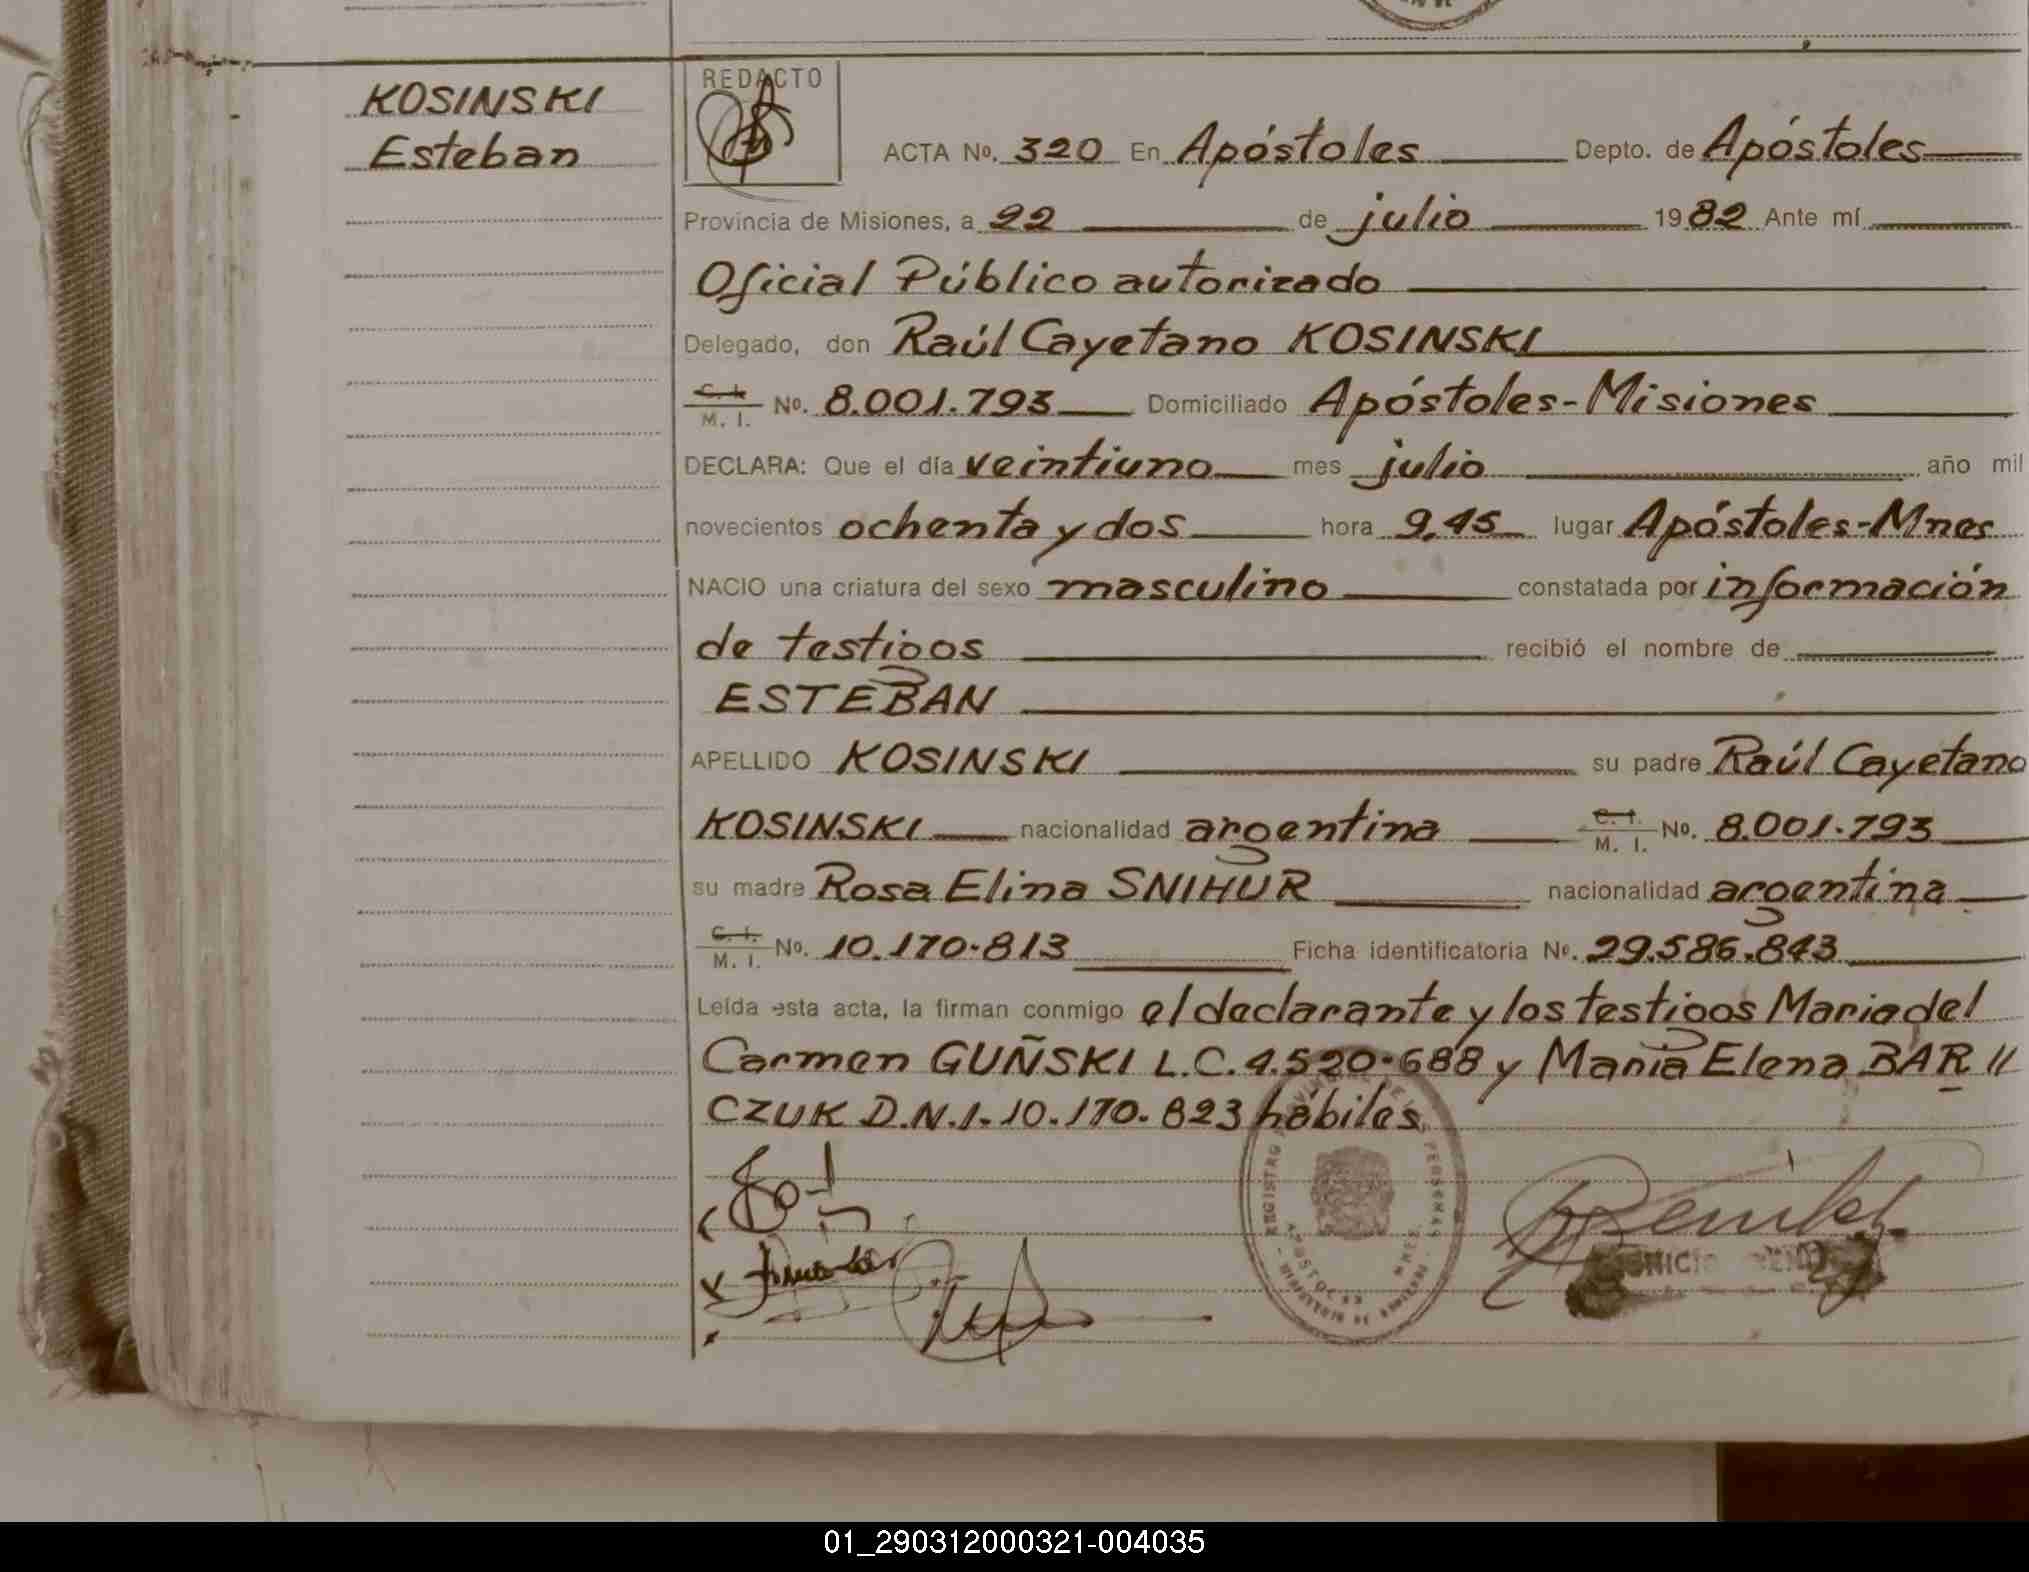 KOSINSKI
Esteban
REDACTO
ACTA Nº. 320 En Apóstoles Depto. de Apóstoles
Provincia de Misiones, a 22 de julio 1982 Ante mí
Oficial Público autorizado
Delegado, don Raúl Cayetano KOSINSKI
C. I. M. I. Nº. 8.001.793 Domiciliado Apóstoles-Misiones
DECLARA: Que el día veintiuno mes julio año mil
novecientos ochenta y dos hora 9,45 lugar Apóstoles-Mnes
NACIO una criatura del sexo masculino constatada por información
de testigos recibió el nombre de
ESTEBAN
APELLIDO KOSINSKI su padre Raúl Cayetano
KOSINSKI nacionalidad argentina C. I. M. I. Nº. 8.001.793
su madre Rosa Elina SNIHUR nacionalidad argentina
C. I. M. I. Nº. 10.170.813 Ficha identificatoria Nº. 29.586.843
Leída esta acta, la firman conmigo el declarante y los testigos Maria del
Carmen GUÑSKI L.C. 4.520.688 y Maria Elena BAR //
CZUK D.N.I. 10.170.823 hábiles
REGISTRO DE LAS PERSONAS
APOSTOLES MNES.
01_290312000321-004035